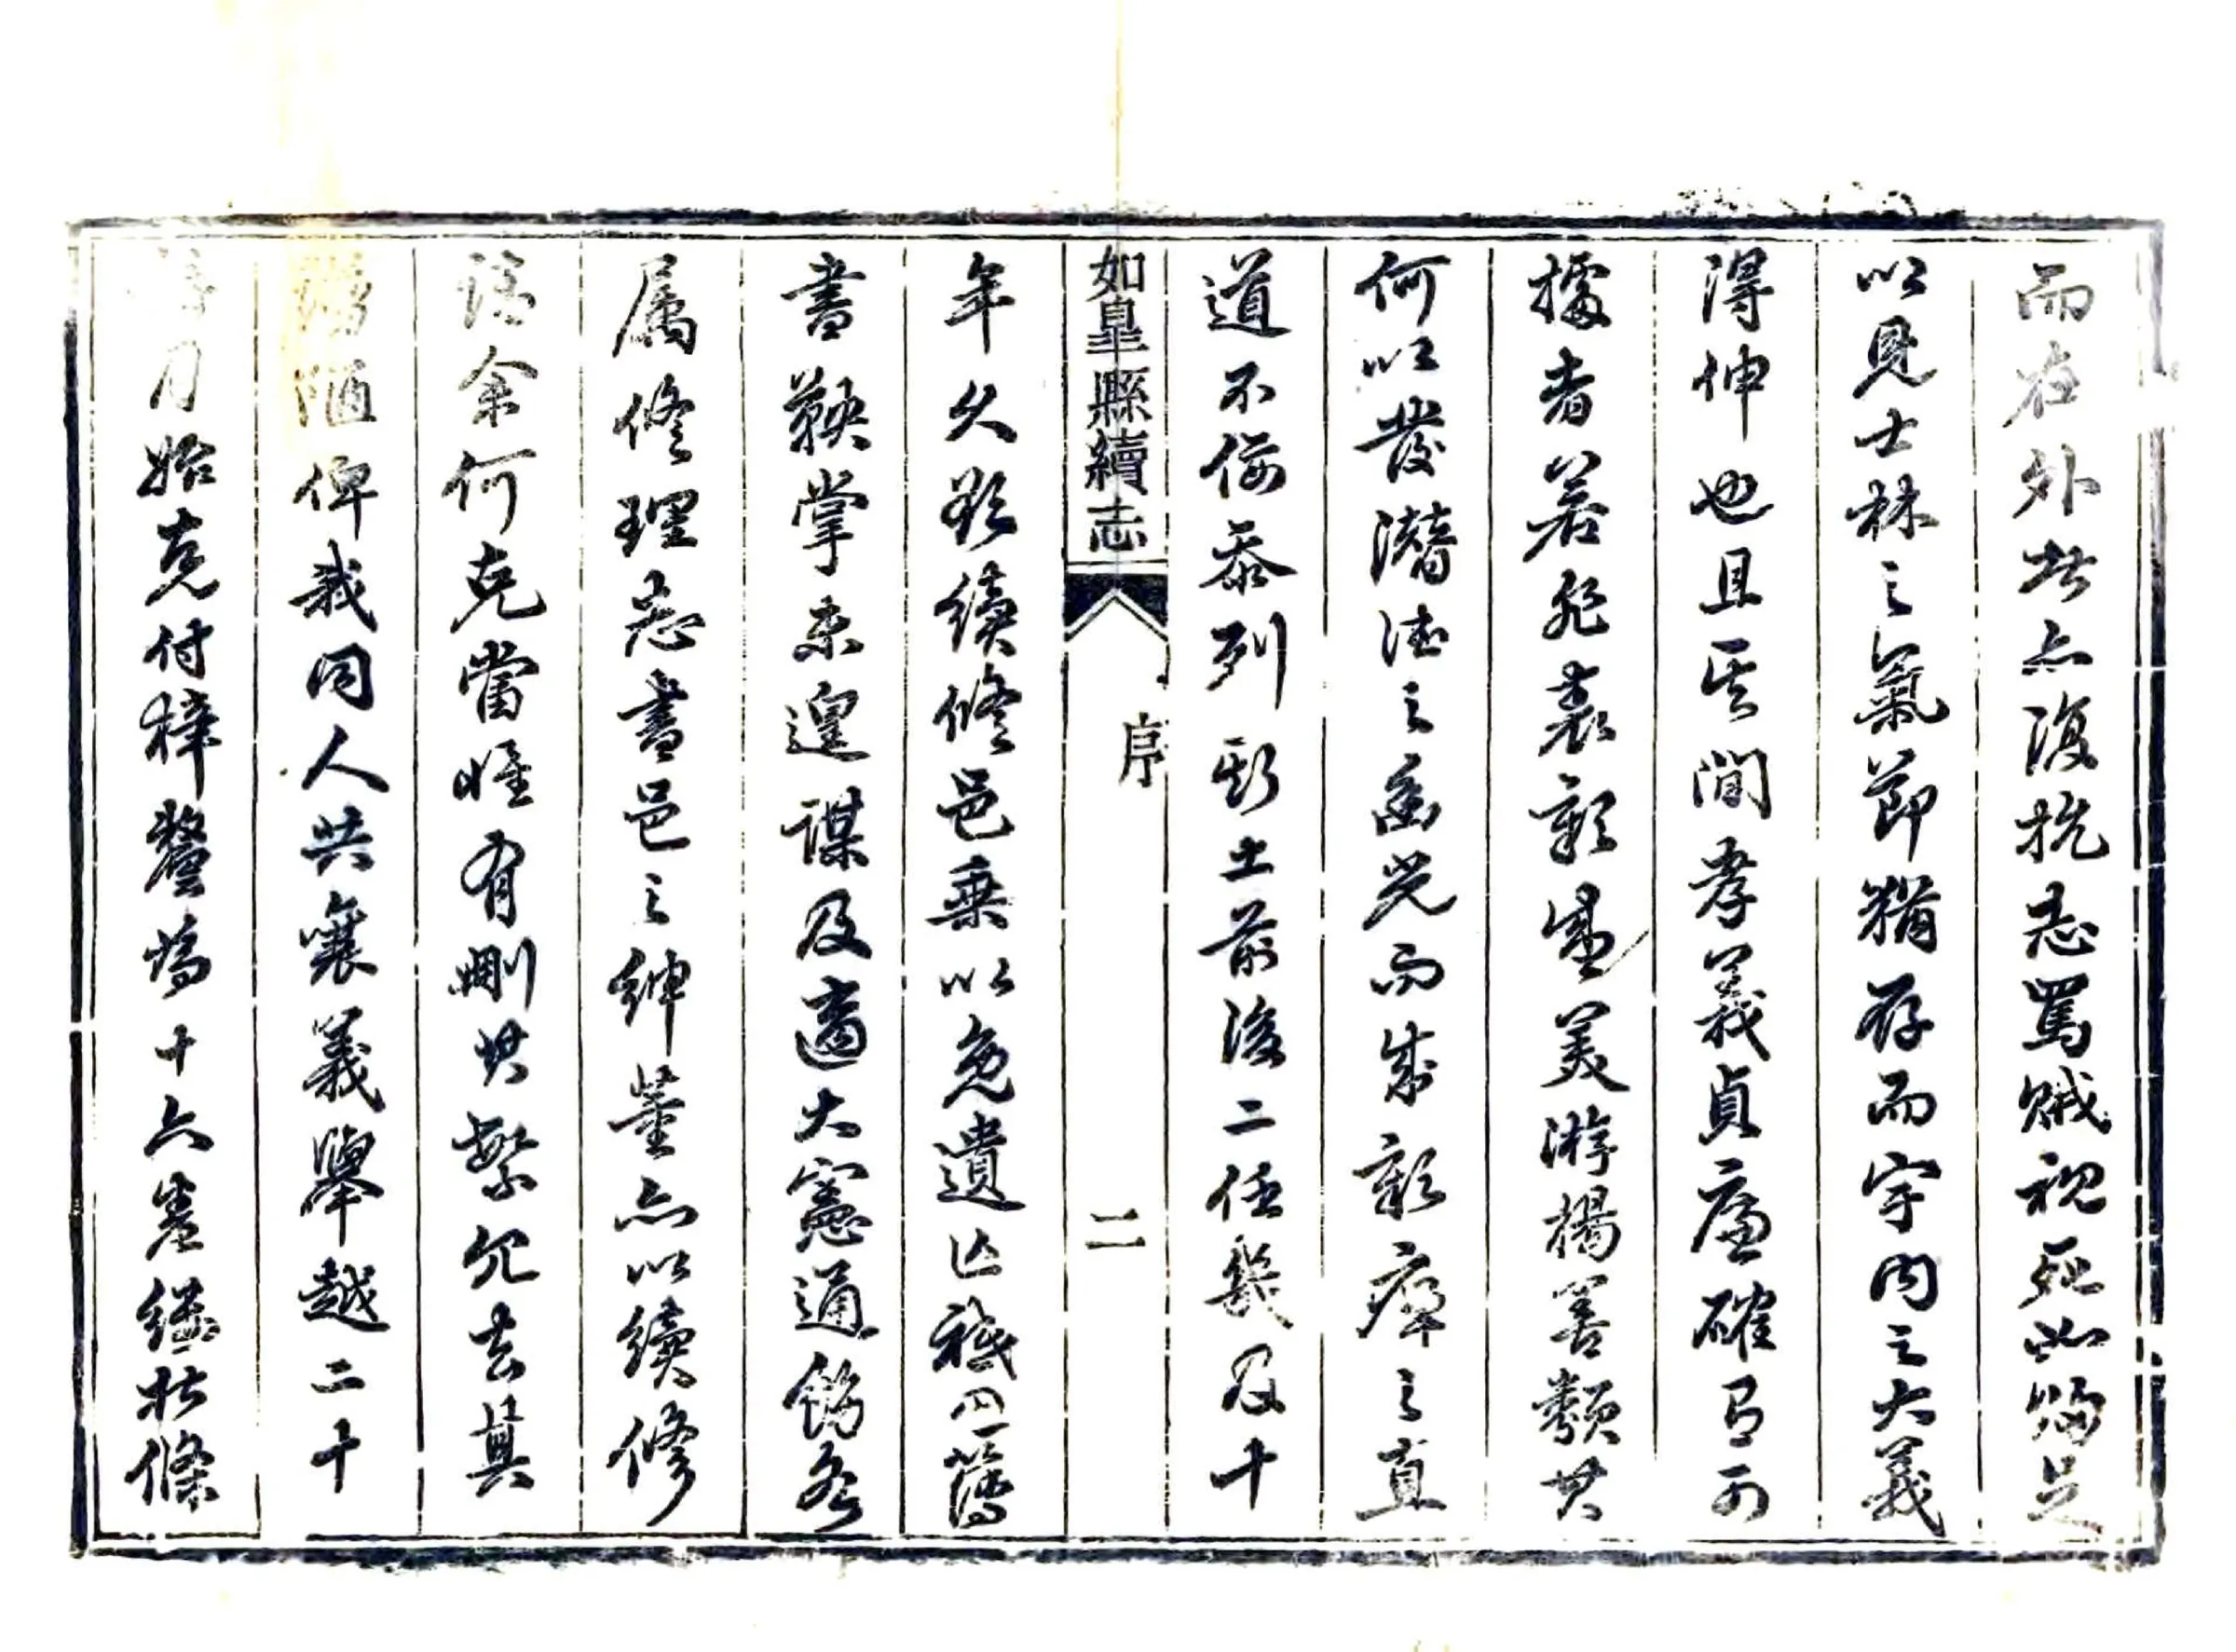 而在外者亦復抗志罵賊視死如歸足
以見士林之氣節猶存而宇內之大義
得伸也且其間孝義貞廉確有可
據者若非表彰盛美游揚善類其
何以發潛德之幽光而成彰癉之直
道不佞忝列斯土前後二任幾及十
如皐縣續志 序 二
年久欲續修邑乘以免遺亡祗因簿
書鞅掌未遑謀及適大憲通飭各
属修理志書邑之紳董亦以續修
請余何克當惟有刪其繁冗去其
陋俾我同人共襄義舉越二十
月始克付梓釐為十六卷條